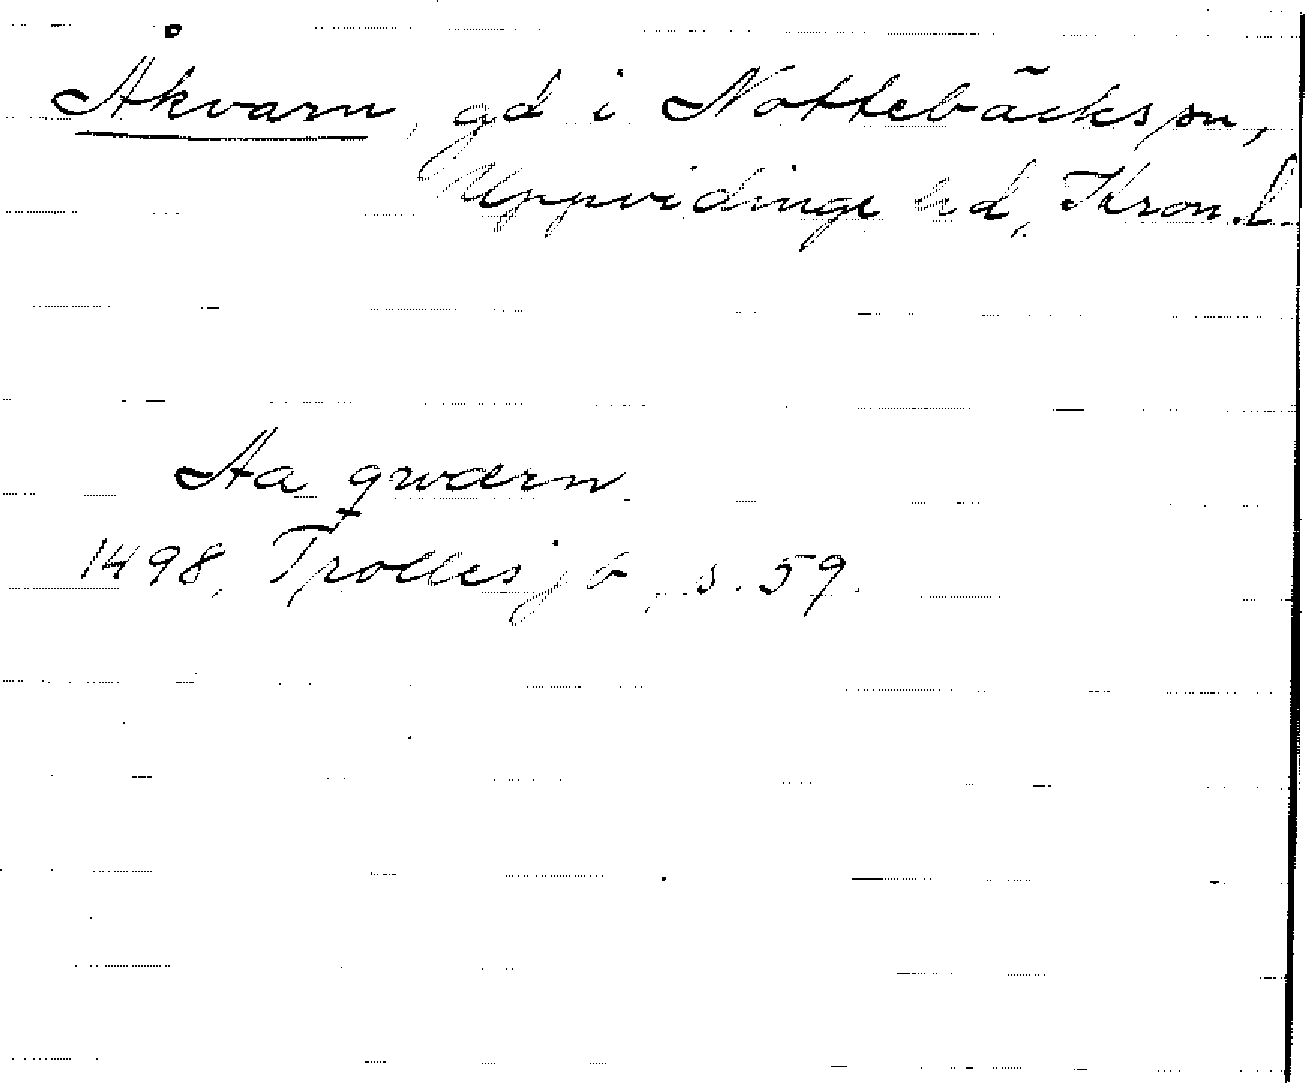 Åkvarn, gd i Nottebäcks sn,
Uppvidinge hd, Kron. l.
Aa qwærn
1498, Trolles jb, s. 59.